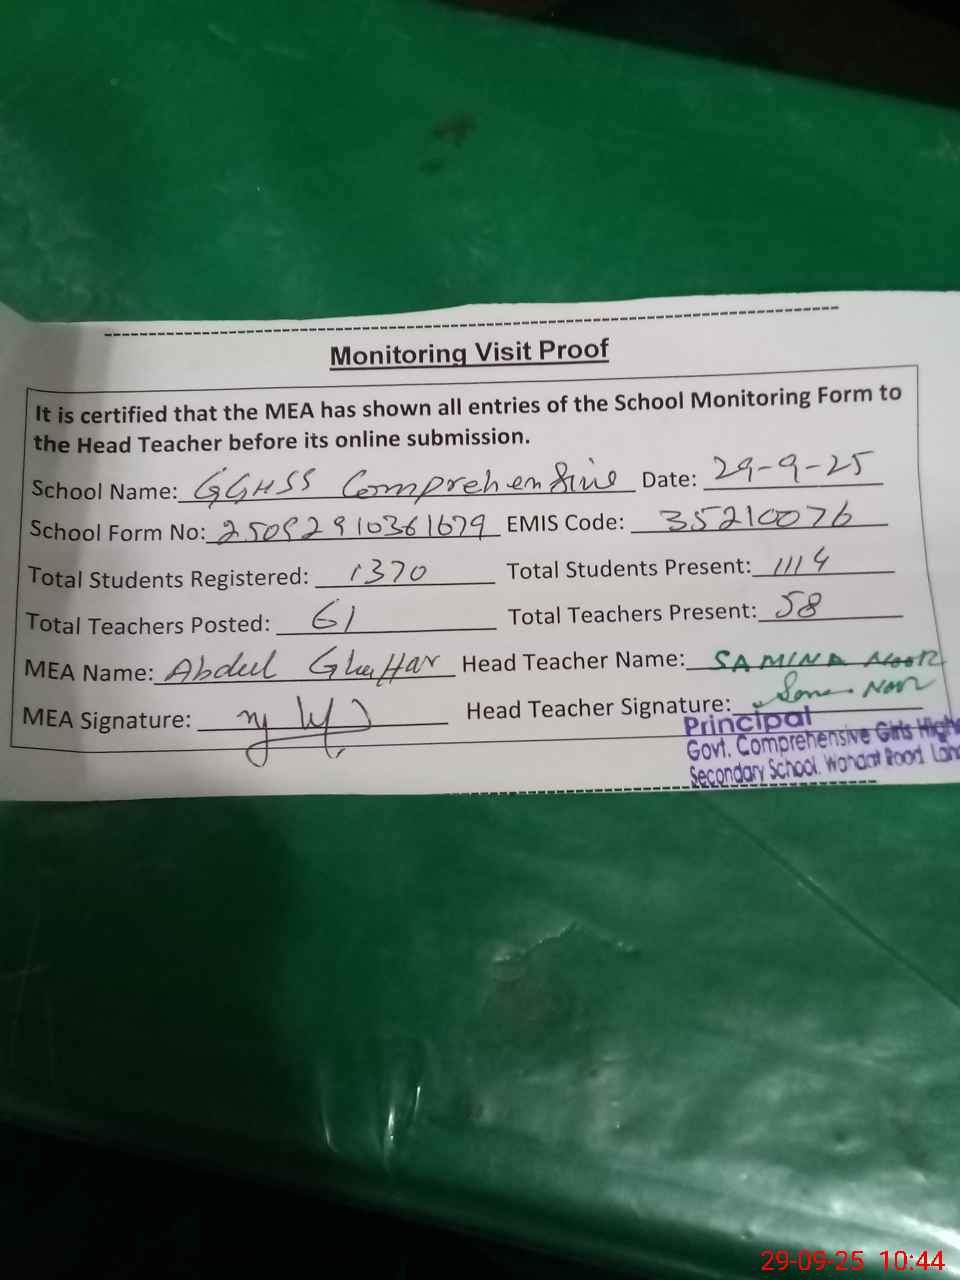 Monitoring Visit Proof
It is certified that the MEA has shown all entries of the School Monitoring Form to
the Head Teacher before its online submission.
School Name: GGHSS Comprehensive Date: 29-9-25
School Form No: 25092910361679 EMIS Code: 35210076
Total Students Registered: 1370 Total Students Present: 1114
Total Teachers Posted: 61 Total Teachers Present: 58
MEA Name: Abdul Ghaffar Head Teacher Name: SAMINA NOOR
MEA Signature: Head Teacher Signature: Noor
Principal
Govt. Comprehensive Girls High
Secondary School. Wahdat Road Lah
29-09-25 10:44